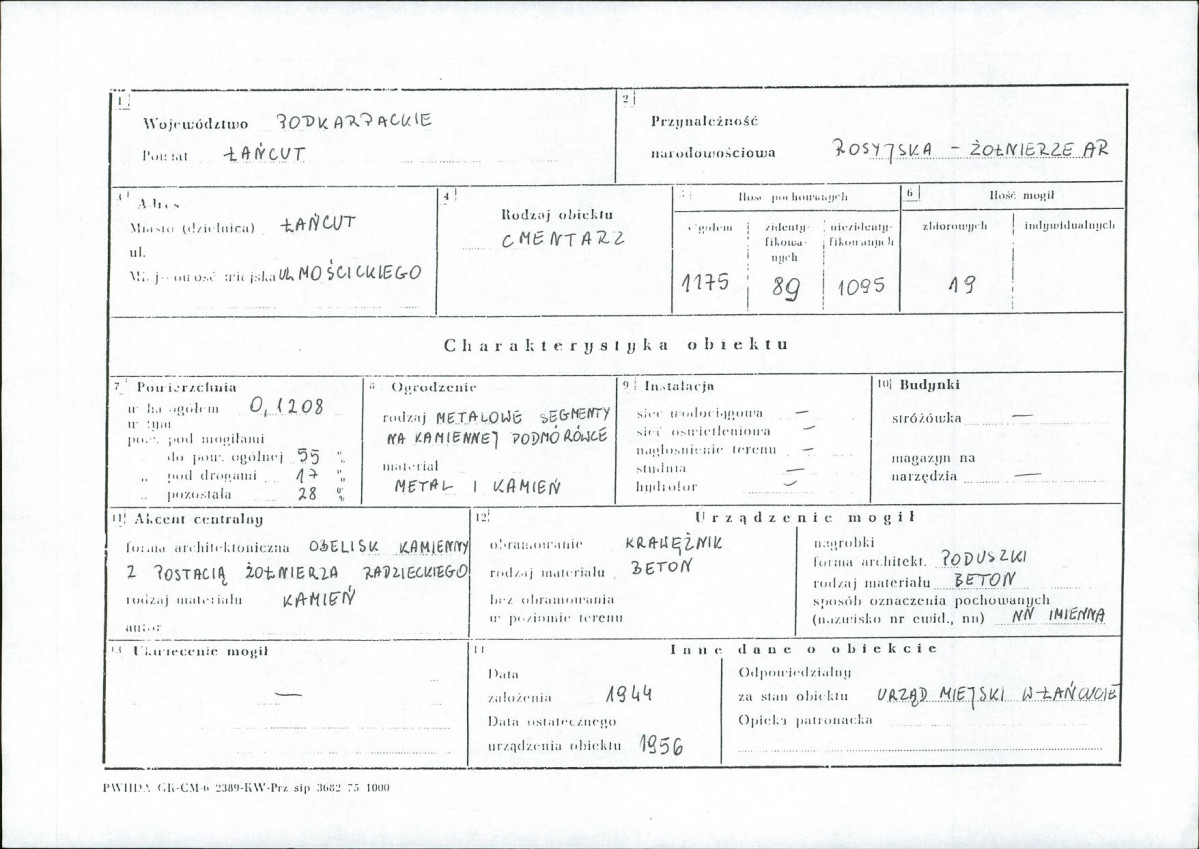 1
Województwo PODKARPACKIE
Powiat ŁAŃCUT
2
Przynależność
narodowościowa ROSYJSKA - ŻOŁNIERZE AR
3 Adres
Miasto (dzielnica) ŁAŃCUT
ul.
Miejscowość wiejska UL MOŚCICKIEGO
4
Rodzaj obiektu
CMENTARZ
5 Ilość pochowanych
ogółem
zidenty-
fikowa-
nych
niezidenty-
fikowanych
1175 89 1095
6 Ilość mogił
zbiorowych indywidualnych
19
Charakterystyka obiektu
7 Powierzchnia
w ha ogółem 0,1208
w tym
pow. pod mogiłami
do pow. ogólnej 55 %
„ pod drogami 17 %
„ pozostała 28 %
8 Ogrodzenie
rodzaj METALOWE SEGMENTY
NA KAMIENNEJ PODMÓRÓWCE
materiał
METAL I KAMIEŃ
9 Instalacja
sieć wodociągowa —
sieć oświetleniowa —
nagłośnienie terenu —
studnia —
hydrofor —
10 Budynki
stróżówka —
magazyn na
narzędzia —
11 Akcent centralny
forma architektoniczna OBELISK KAMIENNY
Z POSTACIĄ ŻOŁNIERZA RADZIECKIEGO
rodzaj materiału KAMIEŃ
autor
12 Urządzenie mogił
obramowanie KRAWĘŻNIK
rodzaj materiału BETON
bez obramowania
w poziomie terenu
nagrobki
forma architekt. PODUSZKI
rodzaj materiału BETON
sposób oznaczenia pochowanych
(nazwisko nr ewid., nn) NN IMIENNA
13 Ukwiecenie mogił
—
14 Inne dane o obiekcie
Data
założenia 1944
Data ostatecznego
urządzenia obiektu 1956
Odpowiedzialny
za stan obiektu URZĄD MIEJSKI W ŁAŃCUCIE
Opieka patronacka
PWHDA GK-CM-6 2389-KW-Prz sip 3682 75 1000